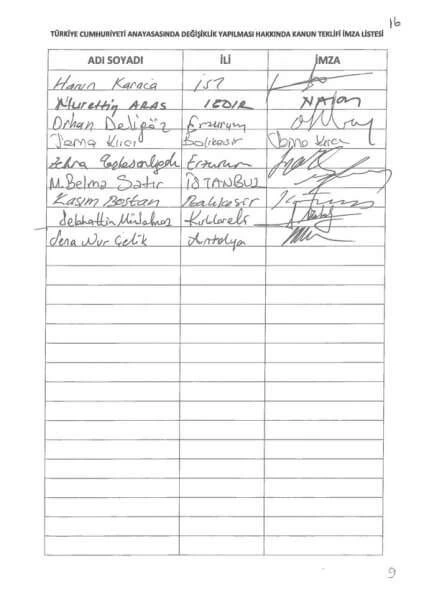 16
TÜRKİYE CUMHURİYETİ ANAYASASINDA DEĞİŞİKLİK YAPILMASI HAKKINDA KANUN TEKLİFİ İMZA LİSTESİ
ADI SOYADI İLİ İMZA
Harun Karaca İST
Nurettin ARAS IĞDIR NAras
Orhan Deligöz Erzurum
Sema Kırcı Balıkesir Sema Kırcı
Zehra Erzurum
M. Belma Satır İSTANBUL
Kasım Bostan Balıkesir
Selahattin Minsolmaz Kırklareli
Sena Nur Çelik Antalya
9